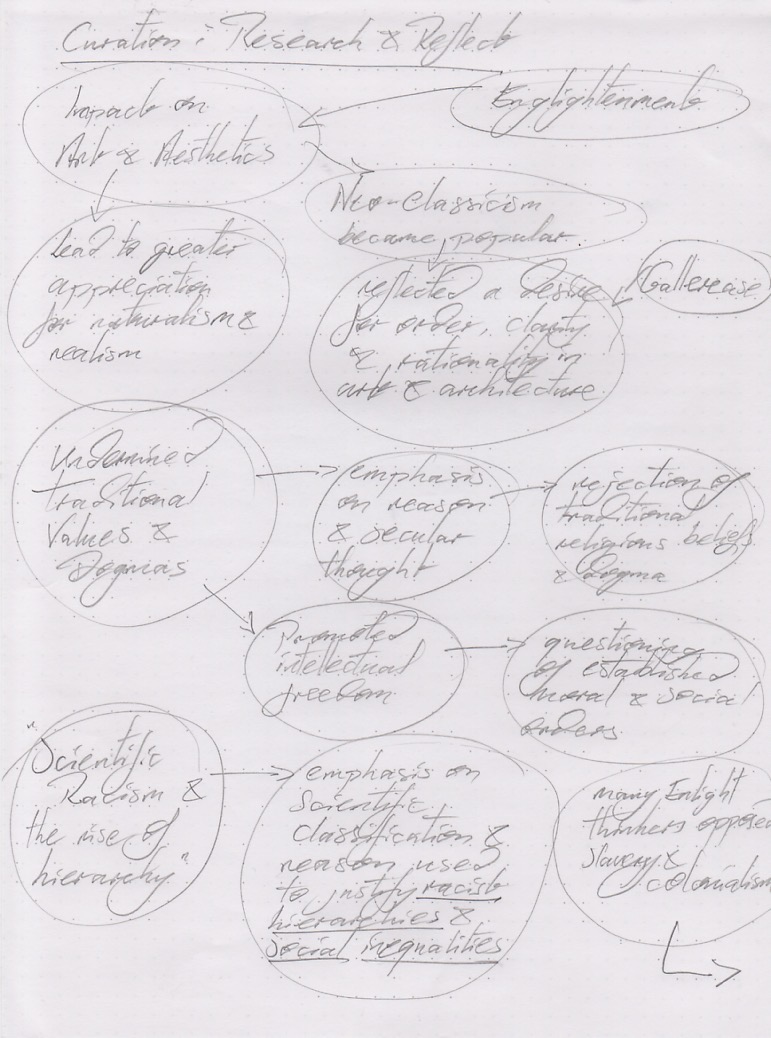 Curation: Research & Reflect
Englightenment
Impact on
Art & Aesthetics
Neo-Classicism
became popular
lead to greater
appreciation
for naturalism &
realism
reflected a desire
for order, clarity
& rationality in
art & architecture
Gallerease
Undermined
traditional
Values &
Dogmas
emphasis
on reason
& secular
thought
rejection of
traditional
religious beliefs
& dogma
Promoted
intellectual
freedom
questioning
of established
moral & social
orders
"Scientific
Racism &
the rise of
hierarchy"
emphasis on
Scientific
classification &
reason used
to justify racist
hierarchies &
social inequalities
many Enlight
thinkers opposed
slavery &
colonialism